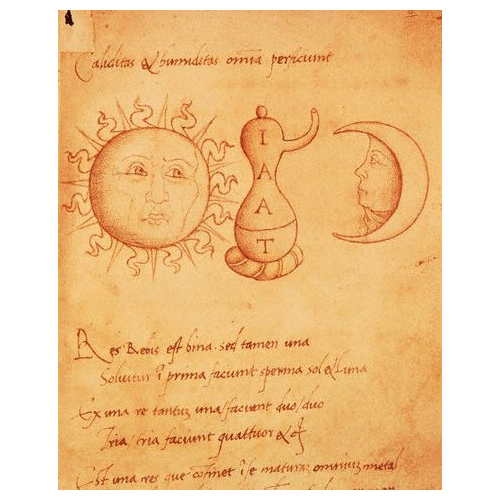 Caliditas & humiditas omĩa perficiunt
I
A
A
T
Res Rebis est bina. sed tamen una
Solvitur ĩ prima faciunt sperma sol & Luna
Ex una re tantũ una/faciunt duo/duo
Tria/tria faciunt quattuor &
Est una res que